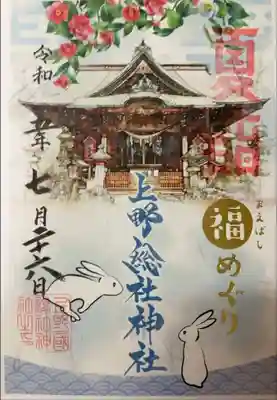 まえばし
福めぐり
上野総社神社
令和
五年
七月二十六日